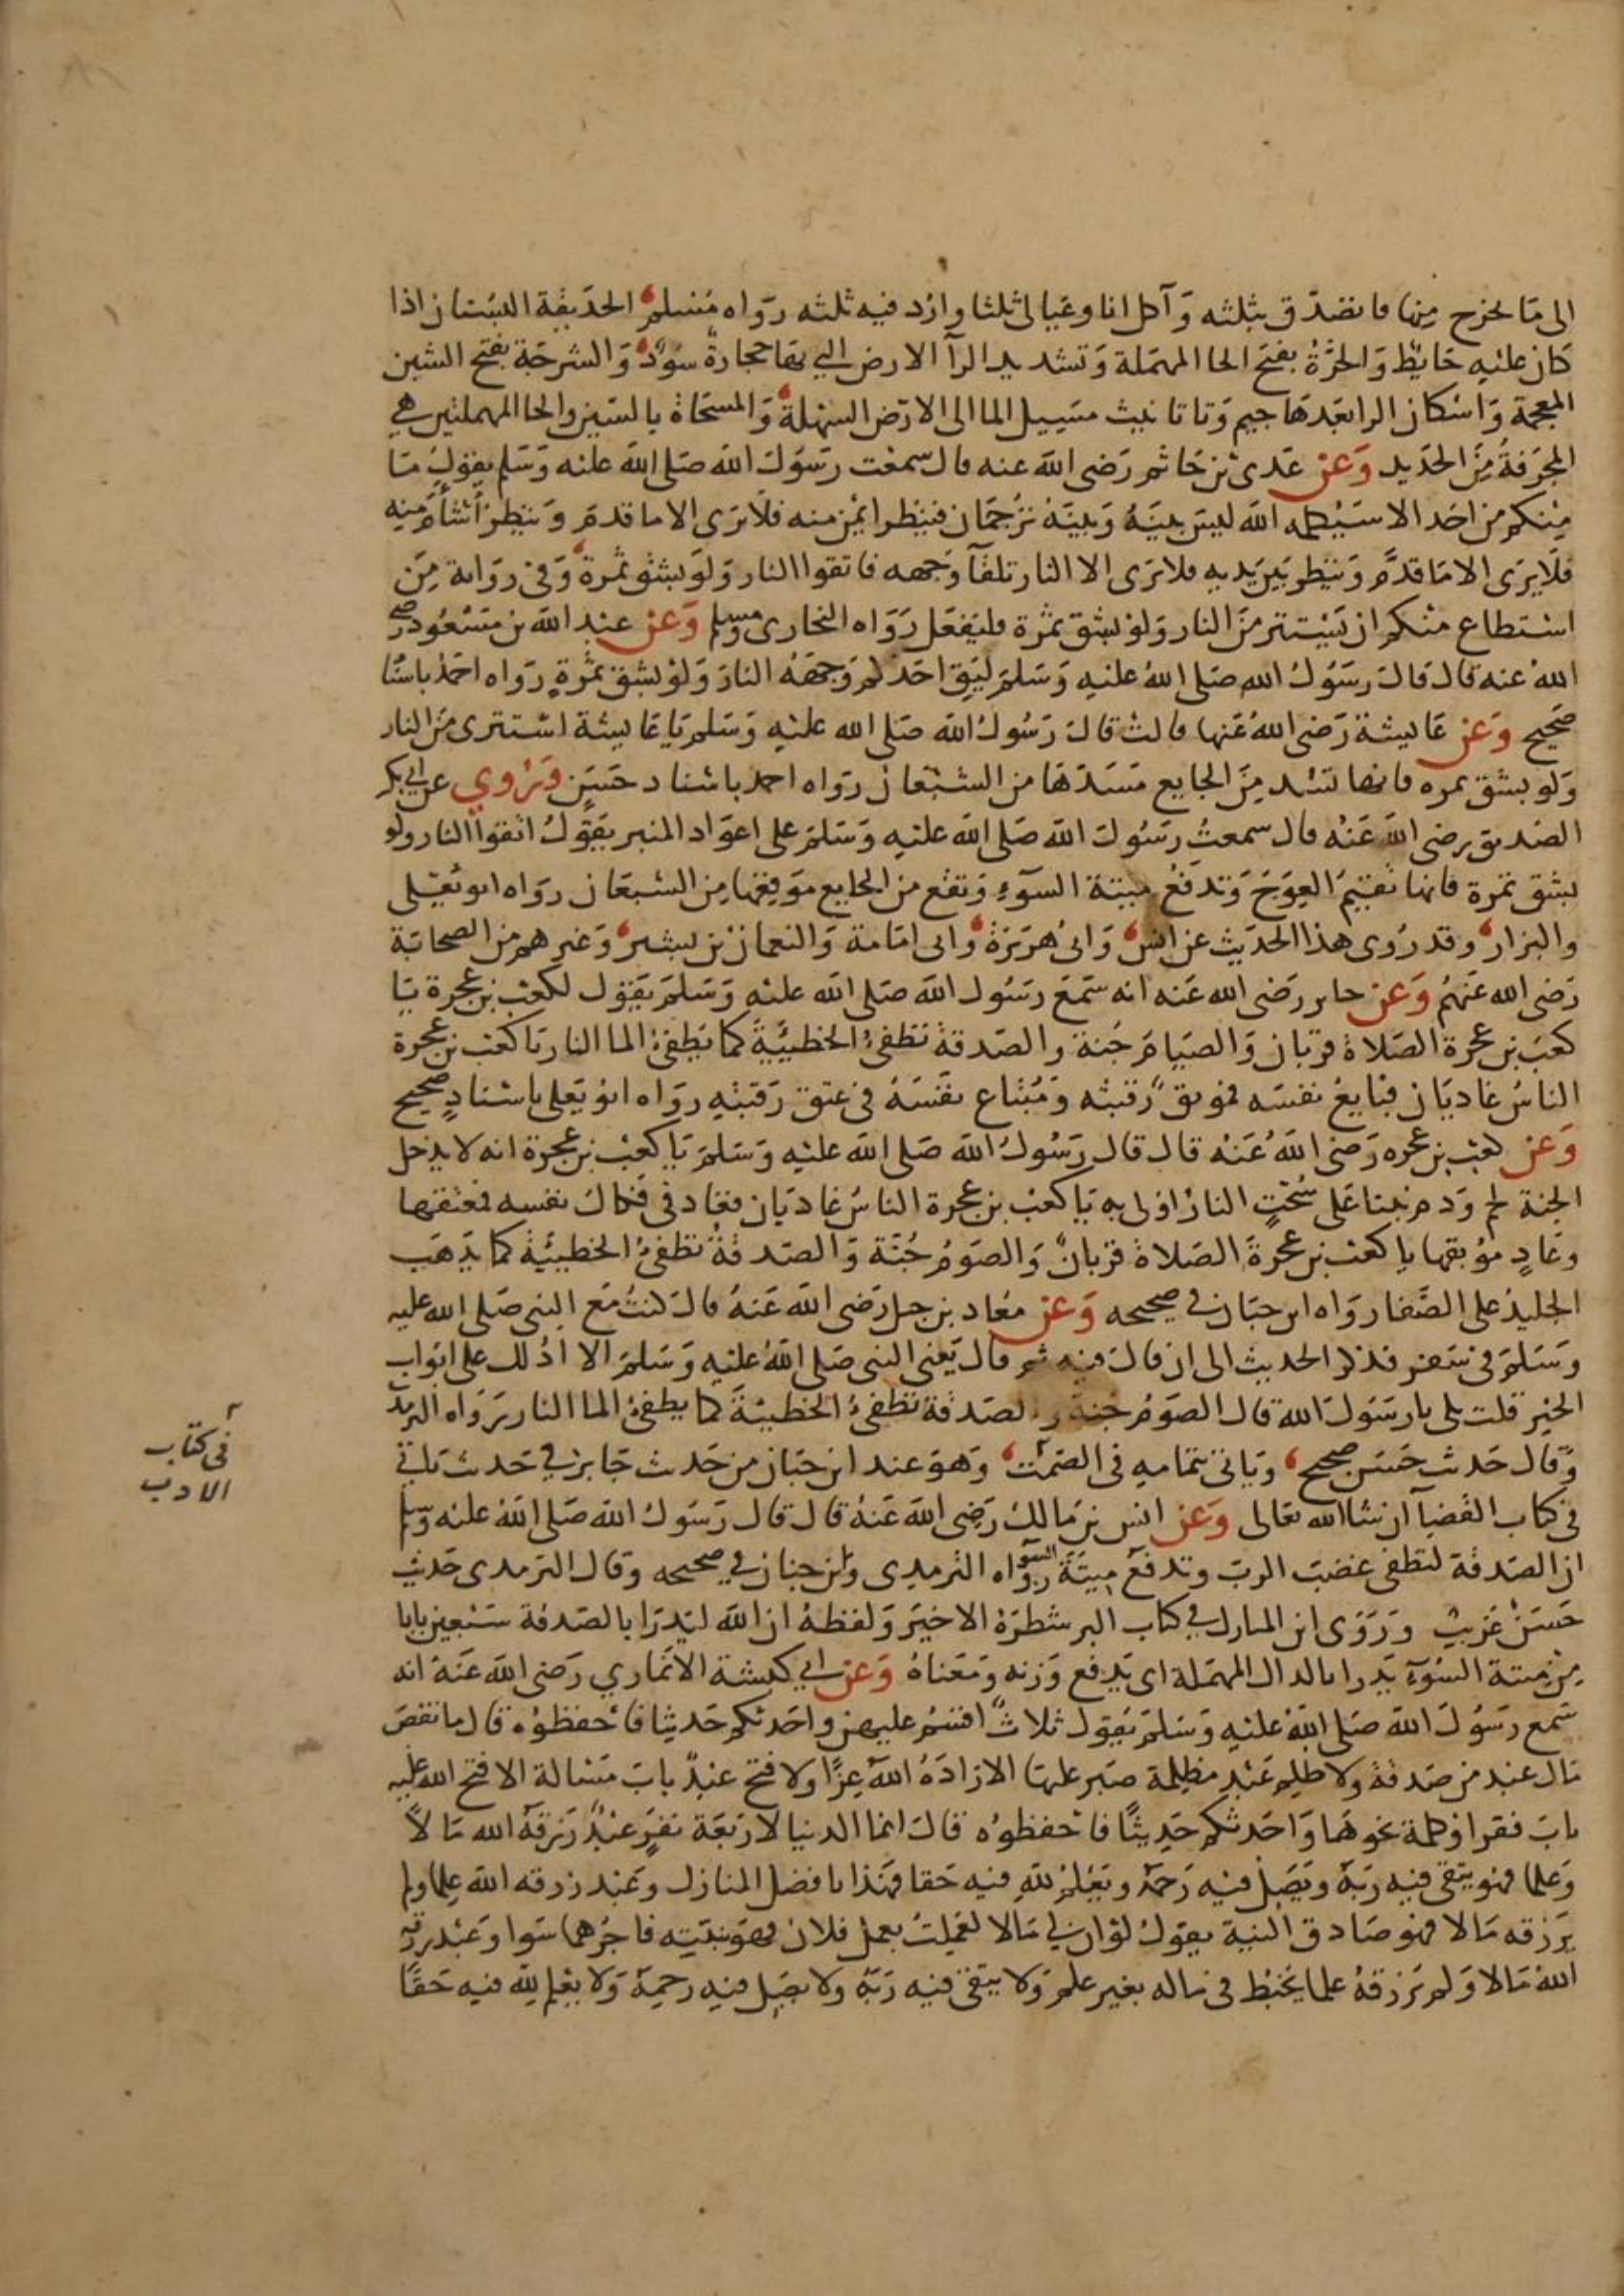 الى مَا يخرج مِنها فاتصَدّق بثلثه وَآكل انا وعَيالى ثلثا وارُد فيه ثلثه رَوَاه مُسْلم الحَديقة البسْتان اذا
كان عليْهِ حَايط وَالحَرَّةُ بفتح الحا المهمَلة وَتشديد الرآ الارض التي بها حجارةٌ سُودٌ وَالشرجَة بفتح الشين
المعجمة وَاسْكان الرا بَعْدهَا جيم وَتا تانيث مسَيل الما الى الارض السَهْلة وَالمسحَاة بالسين والحا المهملتين هي
المجرَفةُ مِنَ الحَديد وَعن عَدىّ بن حَاتم رَضى الله عنه قال سمعْت رسَوُل الله صَلى الله عليه وَسَلم يقول مَا
مِنكم من احَد الا سَيُكلمه الله ليسَ بينَهُ وَبينَه تَرجُمَان فينظر ايمن منه فلا يَرى الا ما قدمَ وَينظر أشأمَ منِه
فلا يَرى الا مَا قدَّم وَينظر بَين يَديه فلا يَرى الا النار تلقآ وَجهه فاتقوا النار وَلوْ بشق تمرة وَفى رواية مِن
اسْتطاع منكم ان يَسْتتر منَ النار وَلوْ بشق تمْرة فليَفعَل رَوَاه البخارى ومسلم وَعن عبْد الله بن مَسْعُود رضى
اللهُ عنه قال قال رسَوُل الله صَلى اللهُ عليْهِ وَسَلمَ ليَقِ احَدكم وَجهَهُ النارَ وَلوْ بشق تمْرةٍ رَواه احمَدُ باسْنا
صَحيح وَعن عَايشة رَضى اللهُ عَنها قالتْ قال رَسُول الله صَلى الله عليْهِ وَسَلم يا عَايشة اسْتترى منَ النار
وَلو بشق تمره فانها تسُد مِنَ الجايع مسَدهَا من الشبْعَان رَوَاه احمد باسْناد حَسَن وَرُوي عن ابي بكر
الصَديق رضى اللهُ عَنْه قال سمعتُ رسَوُل الله صَلى الله عليْهِ وَسَلمَ على اعوَاد المنبر يَقوُلُ اتقوا النار ولو
بشق تمرة فانها تقيمُ العِوَج وَتدفعُ ميتة السوَء وَتقع من الجايع موَقِعَها مِن الشبعَان رَوَاه ابو يَعْلى
والبزار وقد رُوى هذا الحدَيث عن انس وَابى هُرَيرَة وَابى امَامة وَالنعمان بن بشير وَغيرهم من الصحَابَة
رَضى الله عَنهمُ وَعن جابر رَضى الله عَنه انه سَمعَ رسَوُل الله صَلى الله عليْه وَسَلمَ يَقوُل لكعْب بن عجرة يَا
كعْبَ بن عجرة الصَلاة قربان وَالصيَامَ جُنة والصَدقة تطْفئُ الخطيئَةَ كما يُطفئُ الما النار يَا كعْب بن عجرة
الناسُ غاديَان فبَايعُ نفسَه فموبقٌ رَقبته وَمُبْتاع نَفْسَهُ فى عتق رَقبَتهِ روَاه ابوُ يَعلى باسْنادٍ صحيح
وَعن كعْب بن عجره رَضىَ اللهُ عَنْه قال قال رَسُولُ الله صَلى الله عليْهِ وَسَلمَ يَا كعْب بن عجرة انه لا يدْخل
الجنة لحم وَدم نبتا عَلى سُحْتٍ النارُ اوْلى به يَا كعْبَ بن عجرة الناسُ غاديَان فغاد فى فكاك نفسه فمعتقها
وغادٍ موبقها يا كعْبَ بن عجرةَ الصَلاة قرْبانٌ وَالصوَمُ جُنّة وَالصَدقةُ تطْفئُ الخطيئَةَ كما يَذهَب
الجليدُ على الصَّفا روَاه ابن حبَان في صحيحه وَعن معَاد بن جبل رَضى الله عَنهُ قال كنتُ مَع النبى صَلى الله عليه
وَسَلمَ فى سَفر فذكر الحديث الى ان قال فيه ثم قال يَعْنى النبى صَلى اللهُ عليْهِ وَسَلمَ الا ادُلك على ابْوَاب
الخيْر قلت بلى يا رسَوُلَ الله قال الصوَمُ جُنة والصَدقة تطْفئُ الخطيئَةَ كما يطفئُ الما النار رَوَاه الترمذ
وَقال حَديث حَسَن صحيح وَيَاتى بتمامِهِ فى الصَمْت وَهوَ عند ابن حبَان من حَديث جَابر في حَديث يَاتى
فى كتاب القضآ ان شا الله تعَالى وَعن انس بن مَالك رَضِى الله عَنهُ قال قال رَسَوُل الله صَلى اللهُ عليْه وسلم
ان الصَدقة لتطفى غضبَ الربّ وتدفعَ ميتَة السو رَوَاه الترمدى وابن حبان في صحيحه وقال الترمدى حَديث
حَسَنْ غَريبٌ وَرَوَى ابن المبارك في كتاب البر شطرَهُ الاخيَر وَلفظهُ ان الله ليَدرَا بالصَدقة سَبْعين بابا
مِن ميتة السُوَء يَدرا بالدال المهمَلة اى يَدفع وَزنه وَمعَناهُ وَعن ابي كبشة الانْمَاري رَضى الله عَنهُ انه
سَمع رسَوُلَ الله صَلى اللهُ عليْهِ وَسَلمَ يَقوُل ثلاثٌ اقسمُ عليهن واحَدثكم حَديثا فاحْفظوُه قال ما نقصَ
مَال عبْد من صَدقة وَلا ظلِم عَبْد مظلمة صَبر عليهَا الا زادَهُ اللهُ عِزًّا ولا فتح عبْدٌ بابَ مَسْالة الا فتح الله عليه
بابَ فقر اوْ كلمة نحوهَا وَاحَدثكم حَدِيثًا فاحْفظوُه قال انما الدنيا لارْبَعَة نفَرٍ عَبْدٌ رَزقهُ الله مَالاً
وَعلما فهو يتقى فيهِ رَبّهُ وَيَصِلُ فيه رَحمهُ وَيَعْلمُ للهِ فيه حَقا فهَذا بافضل المنازل وَعَبْد رزقه الله علما ولم
يَرزقه مَالا فهْو صَادق النية يقوُلُ لوْ ان لي مَالا لعَملتُ بعمل فلان فهوَ بنيّتِه فاجْرُهما سَوا وَعَبْد رزقه
اللهُ مَالا وَلم يَرزقهُ علما يخبطُ فى مَاله بغير علم وَلا يتقى فيهِ رَبّهُ ولا يصَل فيهِ رحمهَ وَلا يعْلم للهِ فيه حَقًا
فى كتاب
الادب